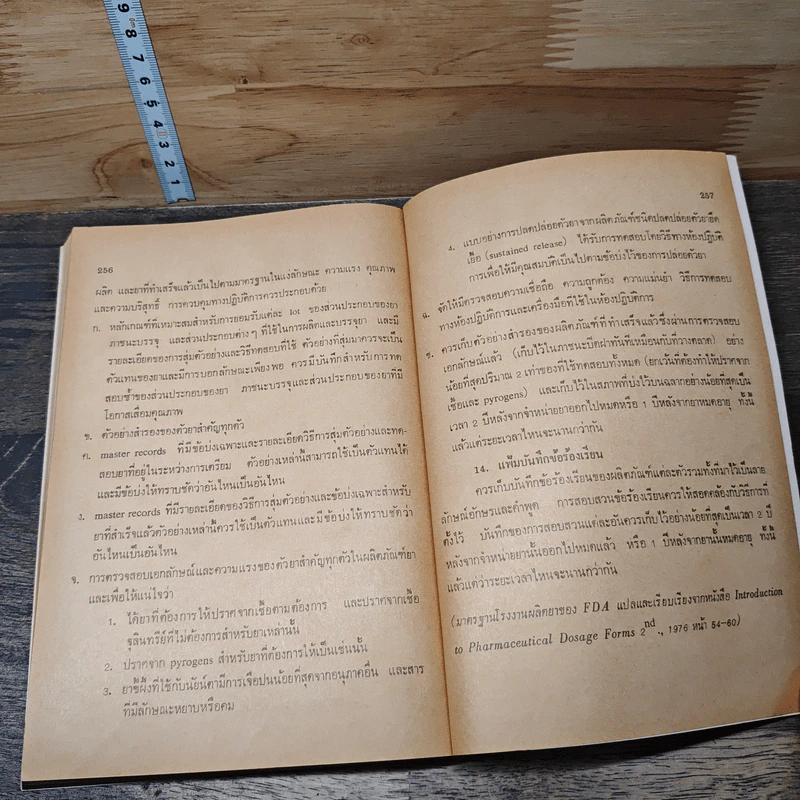 9 8 7 6 5 4 3 2 1
256
ผลิต และยาที่ทำเสร็จแล้วเป็นไปตามมาตรฐานในแง่ลักษณะ ความแรง คุณภาพ
และความบริสุทธิ์ การควบคุมทางปฏิบัติการควรประกอบด้วย
ก. หลักเกณฑ์ที่เหมาะสมสำหรับการยอมรับแต่ละ lot ของส่วนประกอบของยา
ภาชนะบรรจุ และส่วนประกอบต่างๆ ที่ใช้ในการผลิตและบรรจุยา และมี
รายละเอียดของการสุ่มตัวอย่างและวิธีทดสอบที่ใช้ ตัวอย่างที่สุ่มมาควรจะเป็น
ตัวแทนของยาและมีการบอกลักษณะเพียงพอ ควรมีบันทึกสำหรับการทด
สอบซ้ำของส่วนประกอบของยา ภาชนะบรรจุและส่วนประกอบของยาที่มี
โอกาสเสื่อมคุณภาพ
ข. ตัวอย่างสำรองของตัวยาสำคัญทุกตัว
ค. master records ที่มีข้อบ่งเฉพาะและรายละเอียดวิธีการสุ่มตัวอย่างและทด-
สอบยาที่อยู่ในระหว่างการเตรียม ตัวอย่างเหล่านี้สามารถใช้เป็นตัวแทนได้
และมีข้อบ่งให้ทราบชัดว่าอันไหนเป็นอันไหน
ง. master records ที่มีรายละเอียดของวิธีการสุ่มตัวอย่างและข้อบ่งเฉพาะสำหรับ
ยาที่สำเร็จแล้วตัวอย่างเหล่านี้ควรใช้เป็นตัวแทนและมีข้อบ่งให้ทราบชัดว่า
อันไหนเป็นอันไหน
จ. การตรวจสอบเอกลักษณ์และความแรงของตัวยาสำคัญทุกตัวในผลิตภัณฑ์ยา
และเพื่อให้แน่ใจว่า
1. ได้ยาที่ต้องการให้ปราศจากเชื้อตามต้องการ และปราศจากเชื้อ
จุลินทรีย์ที่ไม่ต้องการสำหรับยาเหล่านั้น
2. ปราศจาก pyrogens สำหรับยาที่ต้องการให้เป็นเช่นนั้น
3. ยาขี้ผึ้งที่ใช้กับนัยน์ตามีการเจือปนน้อยที่สุดจากอนุภาคอื่น และสาร
ที่มีลักษณะหยาบหรือคม
257
4. แบบอย่างการปลดปล่อยตัวยาจากผลิตภัณฑ์ชนิดปลดปล่อยตัวยายืด
เยื้อ (sustained release) ได้รับการทดสอบโดยวิธีทางห้องปฏิบัติ
การเพื่อให้มีคุณสมบัติเป็นไปตามข้อบ่งไว้ของการปล่อยตัวยา
ฉ. จัดให้มีตรวจสอบความเชื่อถือ ความถูกต้อง ความแม่นยำ วิธีการทดสอบ
ทางห้องปฏิบัติการและเครื่องมือที่ใช้ในห้องปฏิบัติการ
ช. ควรเก็บตัวอย่างสำรองของผลิตภัณฑ์ที่ทำเสร็จแล้วซึ่งผ่านการตรวจสอบ
เอกลักษณ์แล้ว (เก็บไว้ในภาชนะปิดฝาทันทีเหมือนกับที่วางตลาด) อย่าง
น้อยที่สุดปริมาณ 2 เท่าของที่ใช้ทดสอบทั้งหมด (ยกเว้นที่ต้องทำให้ปราศจาก
เชื้อและ pyrogens) และเก็บไว้ในสภาพที่บ่งไว้บนฉลากอย่างน้อยที่สุดเป็น
เวลา 2 ปีหลังจากจำหน่ายยาออกไปหมดหรือ 1 ปีหลังจากยาหมดอายุ ทั้งนี้
แล้วแต่ระยะเวลาไหนจะนานกว่ากัน
14. แฟ้มบันทึกข้อร้องเรียน
ควรเก็บบันทึกข้อร้องเรียนของผลิตภัณฑ์แต่ละตัวรวมทั้งที่มาไว้เป็นลาย
ลักษณ์อักษรและคำพูด การสอบสวนข้อร้องเรียนควรให้สอดคล้องกับวิธีการที่
ตั้งไว้ บันทึกของการสอบสวนแต่ละอันควรเก็บไว้อย่างน้อยที่สุดเป็นเวลา 2 ปี
หลังจากจำหน่ายยานั้นออกไปหมดแล้ว หรือ 1 ปีหลังจากยานั้นหมดอายุ ทั้งนี้
แล้วแต่ว่าระยะเวลาไหนจะนานกว่ากัน
(มาตรฐานโรงงานผลิตยาของ FDA แปลและเรียบเรียงจากหนังสือ Introduction
to Pharmaceutical Dosage Forms 2nd., 1976 หน้า 54-60)